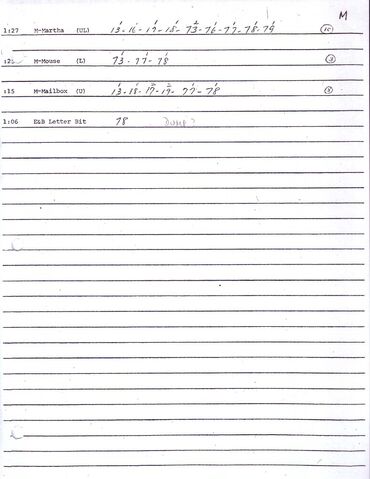 M
1:27 M-Martha (UL) 13-16-17-18-73-76-77-78-79 10
M-Mouse (L) 73-77-78 3
:15 M-Mailbox (U) 77-78
1:06 E&B Letter Bit 78